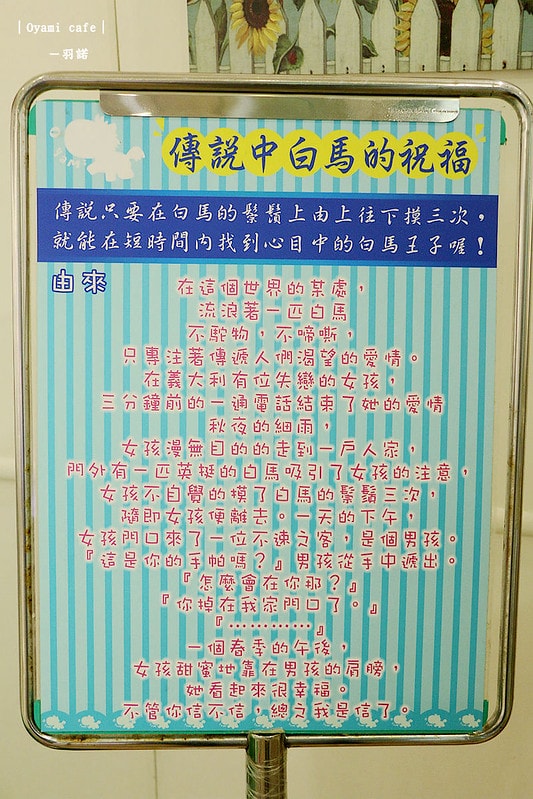 | Oyami cafe |
－羽諾
傳說中白馬的祝福
傳說只要在白馬的鬃鬚上由上往下摸三次，
就能在短時間內找到心目中的白馬王子喔！
由來
在這個世界的某處，
流浪著一匹白馬
不駝物，不啼嘶，
只專注著傳遞人們渴望的愛情。
在義大利有位失戀的女孩，
三分鐘前的一通電話結束了她的愛情
秋夜的細雨，
女孩漫無目的的走到一戶人家，
門外有一匹英挺的白馬吸引了女孩的注意，
女孩不自覺的摸了白馬的鬃鬚三次，
隨即女孩便離去。一天的下午，
女孩門口來了一位不速之客，是個男孩。
『這是你的手帕嗎？』男孩從手中遞出。
『怎麼會在你那？』
『你掉在我家門口了。』
『…………』
一個春季的午後，
女孩甜蜜地靠在男孩的肩膀，
她看起來很幸福。
不管你信不信，總之我是信了。